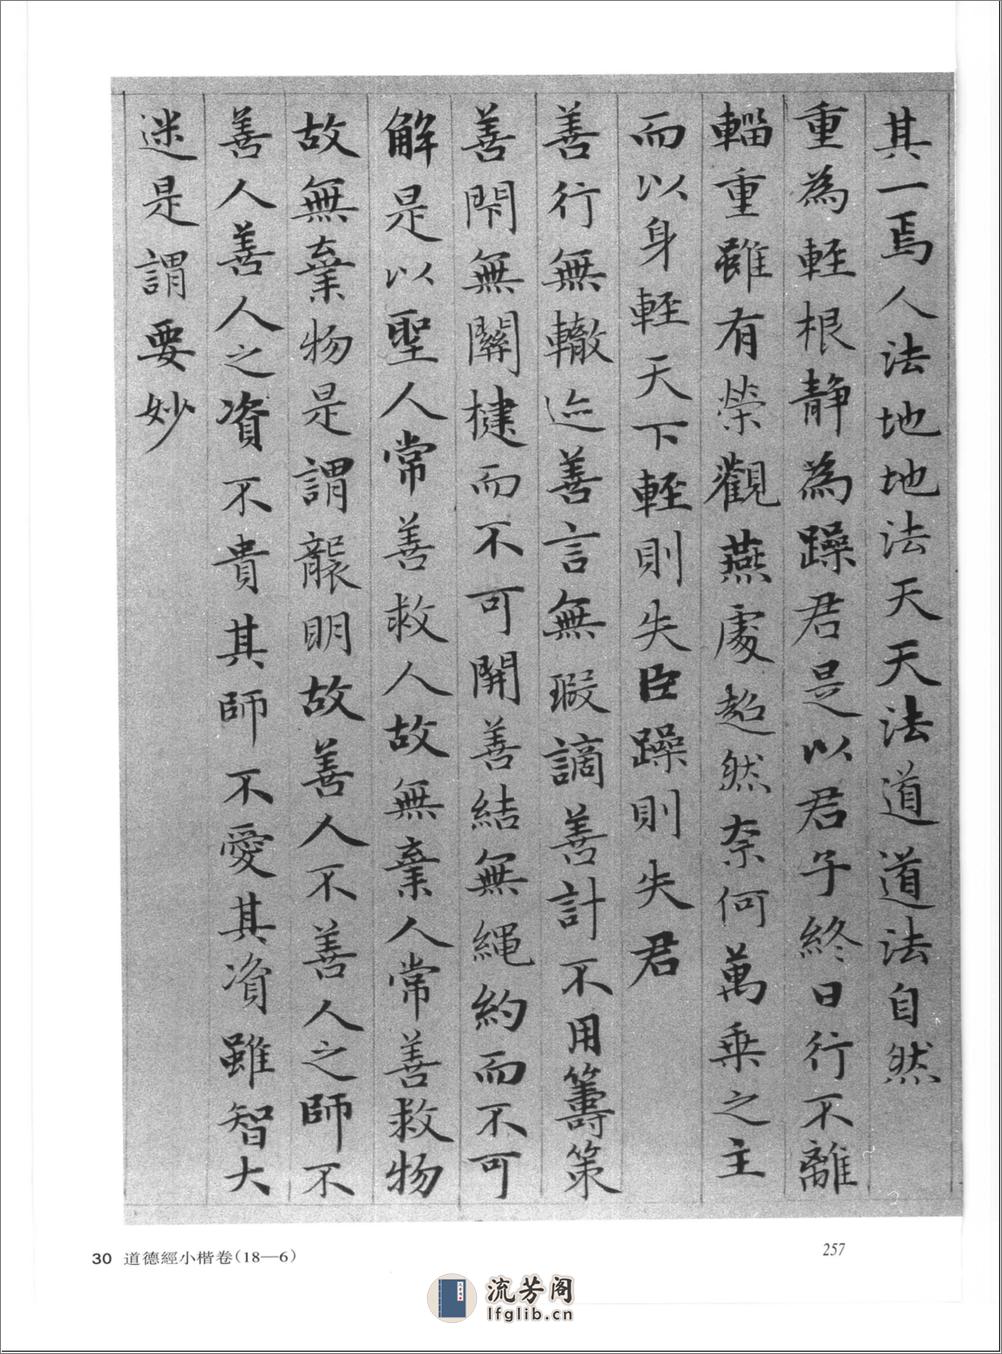 其一焉人法地地法天天法道道法自然
重為輕根靜為躁君是以君子終日行不離
輜重雖有榮觀燕處超然奈何萬乘之主
而以身輕天下輕則失臣躁則失君
善行無轍迹善言無瑕謫善計不用籌策
善閇無關揵而不可開善結無繩約而不可
解是以聖人常善救人故無棄人常善救物
故無棄物是謂襲明故善人不善人之師不
善人善人之資不貴其師不愛其資雖智大
迷是謂要妙
30 道德經小楷卷(18—6)
257
流芳阁
lfglib.cn